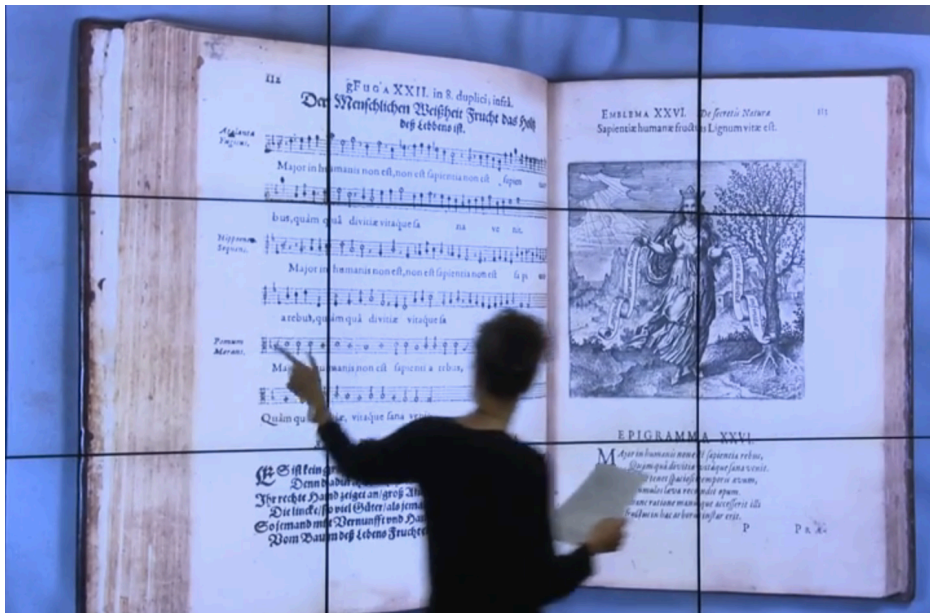 III
FUGA XXII. in 8. duplici, infrà.
Der Menschlichen Weißheit Frucht das Holtz
deß Lebbens ist.
Atalanta
Fugiens.
Major in humanis non est, non est sapientia non est sapien
bus, quàm quâ divitiæ vitaque sa na ve nit.
Hippomenes
Sequens.
Major in humanis non est, non est sapientia non est sa pi
arebus, quàm quâ divitiæ vitaque sa
Pomum
Morans.
humanis non est sapienti a rebus,
Quàm vitaque sana
ES ist kein
Denn dadurch
Ihr rechte Hand zeiget an / groß
Die lincke / so viel Güter / als
So jemand mit Vernunfft und
Vom Baum deß Lebens Fruchte
EMBLEMA XXVI. De secretis Naturæ III
Sapientiæ humanæ fructus Lignum vitæ est.
EPIGRAMMA XXVI.
MAjor in humanis non est sapientia rebus,
Quàm quâ divitiæ vitaque sana venit.
tenet spacium temporis ævum,
cumulos læva recondit opum.
hunc ratione manuque accesserit illi
Fructus in hac arbore instar erit.
P PRÆ-